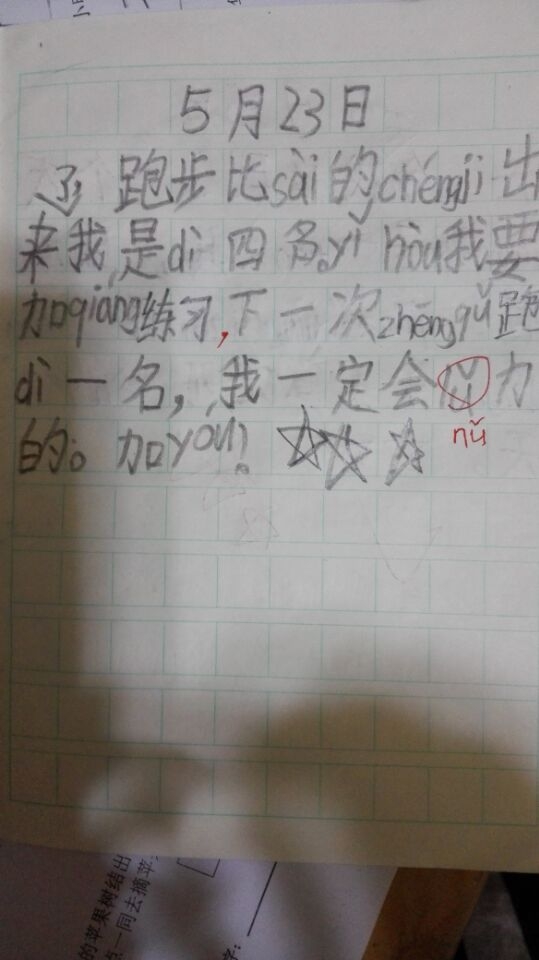 5月23日
跑步比sài的chéngjì出
来我是dì四名。yǐ hòu我要
加qiáng练习,下一次zhēngqǔ跑
dì一名,我一定会力
nǔ
的。加yóu!
的苹果树结出
点一同去摘苹
字: